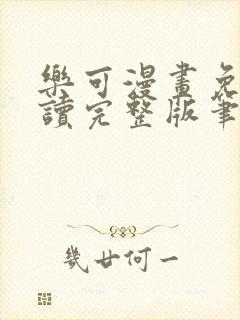 樂可漫畫免
讀完整版筆
幾廿何一